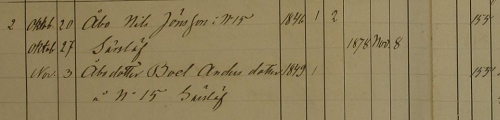 2 Oktob. 20 Åbo Nils Jönsson: N 15 1846 1 2 155
Oktob. 27 Särslöf 1878 Nov. 8
Nov. 3 Åbodotter Boel Anders dotter 1849 1 155
a N 15 Särslöf